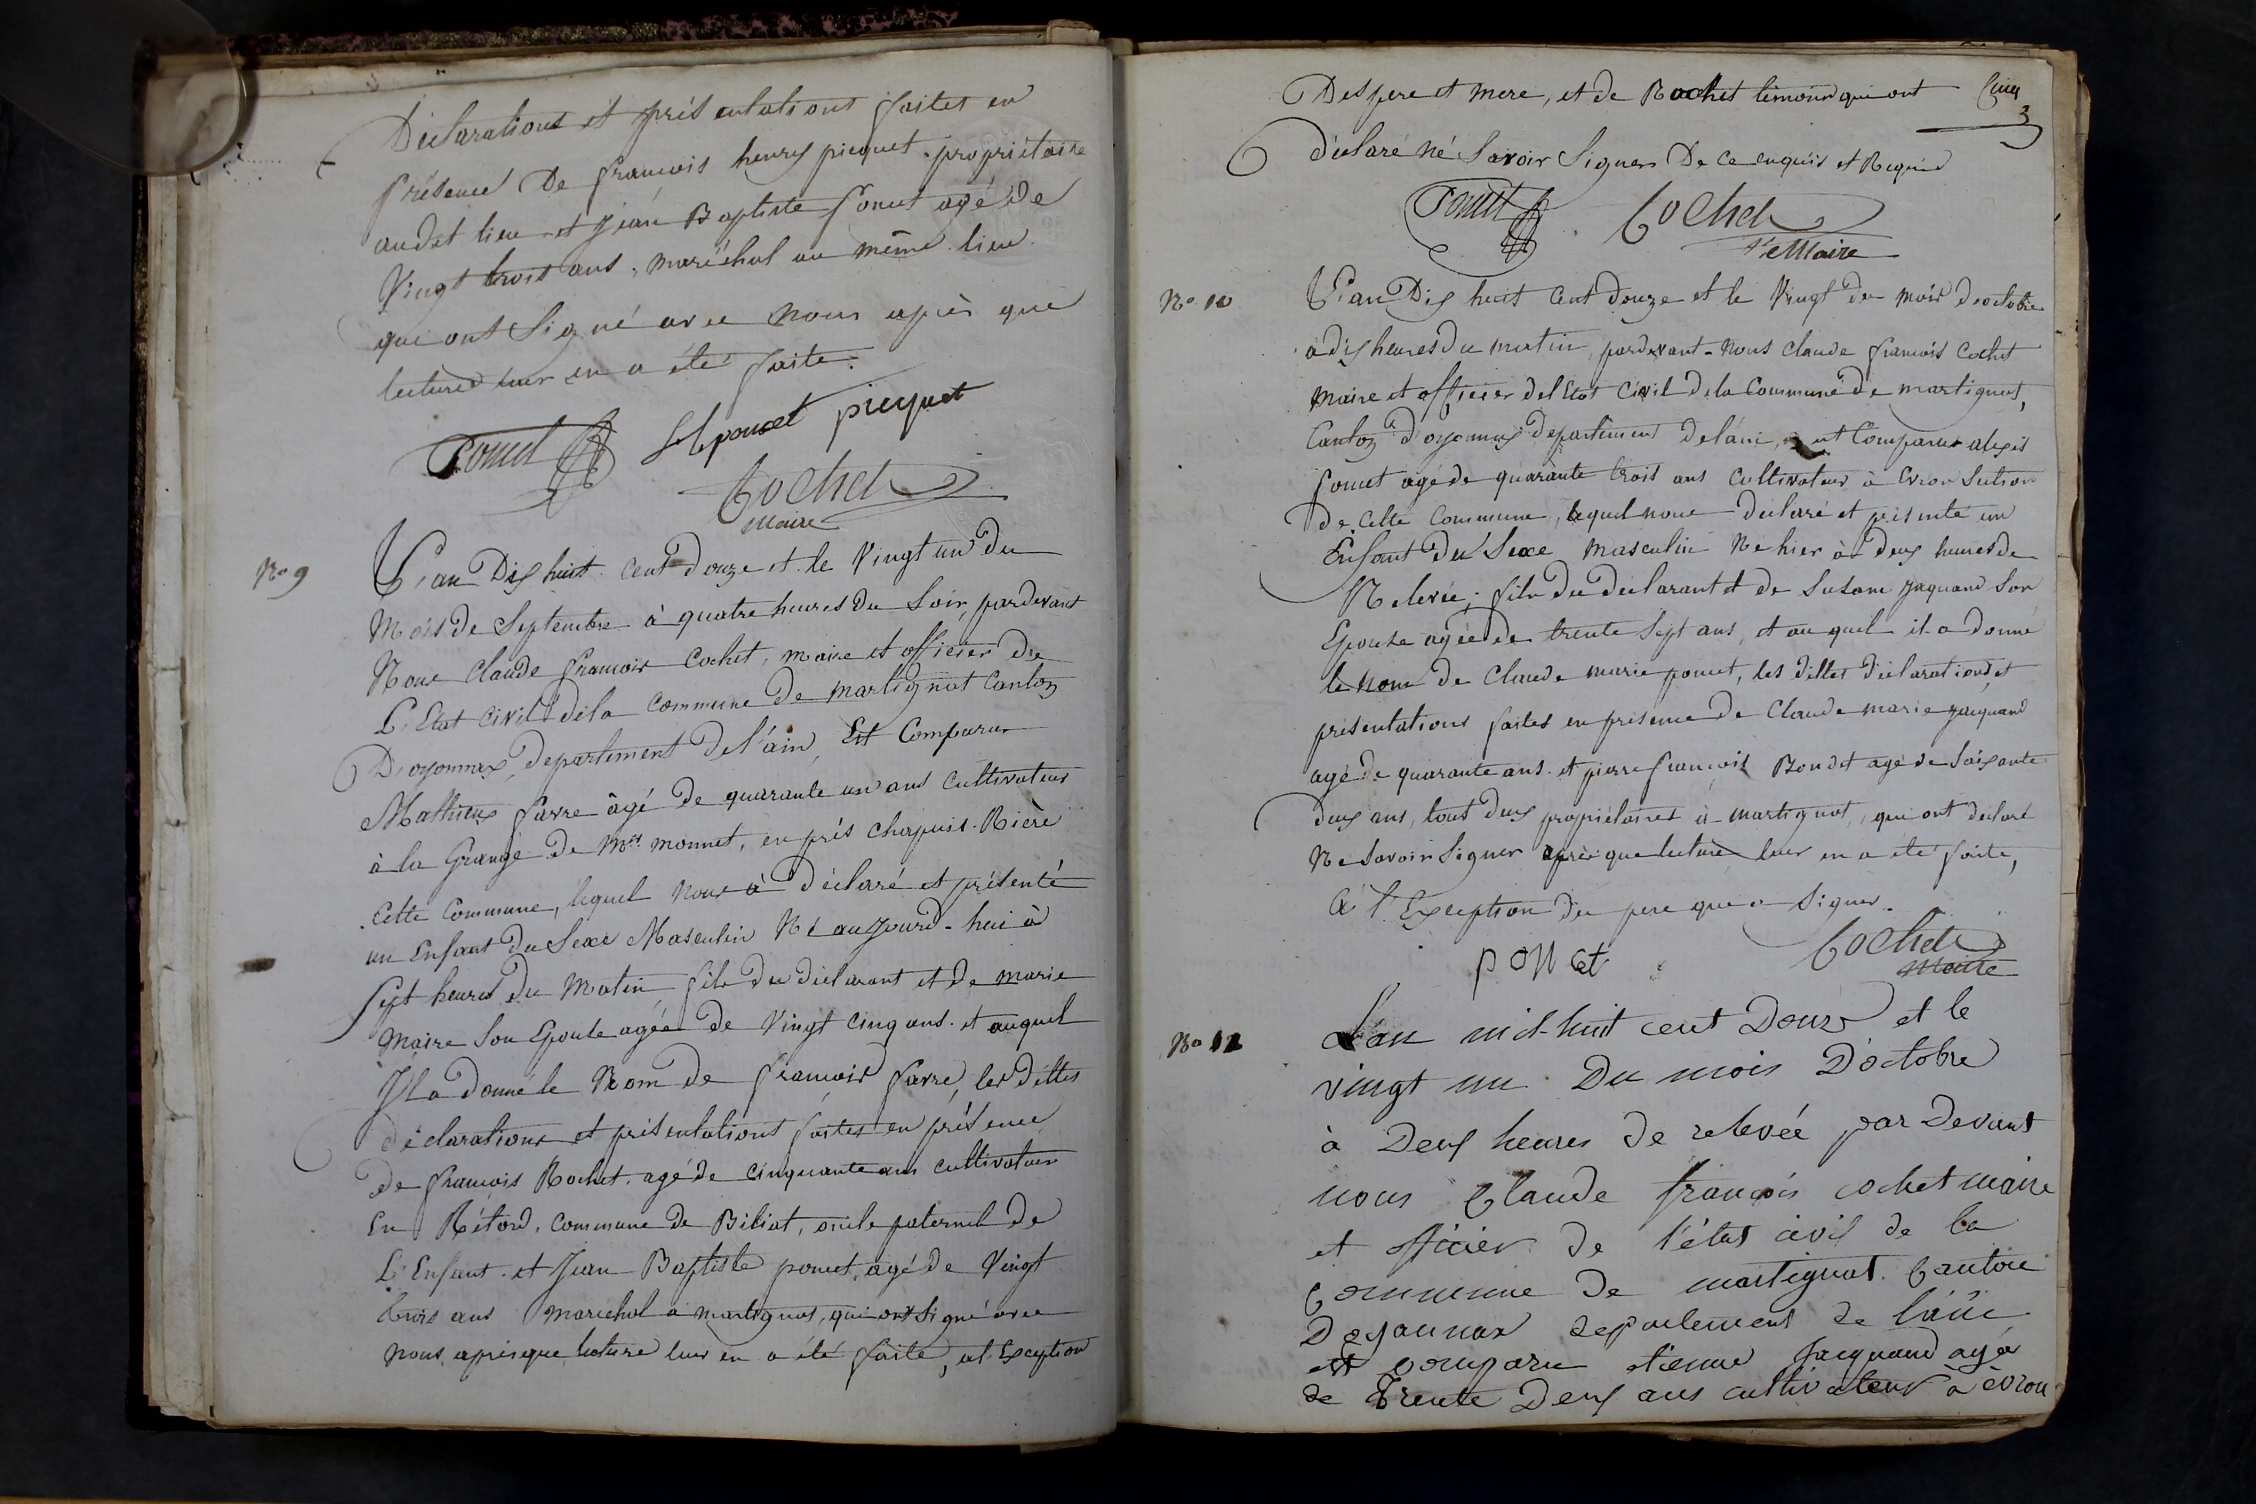 Déclarations et présentations faites en
présence De francois henry picquet propriétaire
audet lieu et Jean Baptiste Ponset agé De
Vingt trois ans, maréchal au même lieu
qui ont Signé avec Nous après que
lecture leur en a été faite.
Poncet JB poncet picquet
Cochet
Maire
No 9
L'an Dix huit cent Douze et le Vingt un du
Mois De Septembre à quatre heures Du Soir, pardevant
Nous Claude francois Cochet, maire et officier De
L'Etat civil dela commune De martignat Canton
D'oyonnax, departement De l'ain, Est Comparu
Mathieux favre âgé De quarante un ans cultivateur
à la Grange De Mr monnet, en prés chapuis Rière
Cette Commune, lequel Nous à Déclaré et présenté
un Enfant Du Sexe Masculin Né aujourd-hui à
Sept heures Du Matin fils Du Déclarant et De marie
Maire Son Epouse agée De Vingt cinq ans et auquel
Il a Donné le Nom De francois favre, les Dittes
déclarations et présentations faites en présence
De francois Rochet agé de cinquante ans cultivateur
En Rétord, commune De Billiat, oncle paternel De
L'Enfant et Jean Baptiste poncet, agé De Vingt
trois ans Marechal a martignat, qui ont Signé avec
Nous, après que lecture leur en a été faite, al Exception
Des pere et mere, et de Rochet témoin qui ont Cinq
3
Déclaré né Savoir Signer De ce enquis et Requis
Poncet Cochet
Maire
No 10
L'an Dix huit cent Douze et le Vingt du mois D'octobre
à dix heures Du matin, pardevant Nous Claude francois Cochet
Maire et officier del'Etat Civil Dela Commune De martignat,
Canton D'oyonnax département Del'ain, est Comparu alexis
poncet agé de quarante trois ans Cultivateur à Evron Section
De Cette Commune, lequel nous Déclaré et présenté un
Enfant Du Sexe Masculin Né hier à Deux heures De
Relevée, fils Du Déclarant et de Susane Jaquand Son
Epouse agée de trente Sept ans, et au quel il a donné
le Nom de Claude marie poncet, les Dittes Déclarations et
présentations faites en présence De Claude marie jacquand
agé De quarante ans et pierre francois Bondet agé De Soixante
Deux ans, tous Deux propriétaires à martignat, qui ont déclaré
Ne Savoir Signer après que lecture leur en a été faite,
à l'Exception Du pere qui a Signé.
ponset Cochet
Maire
No 11
L'an mil-huit cent Douze et le
vingt un Du mois D'octobre
à Deux heures De relevée par Devant
nous Claude francois cochet maire
et officier De l'état civil de la
Commune De martignat. Canton
D'oyonnax département De l'ain
est comparu etienne Jacquand agé
de Trente Deux ans cultivateur à évron